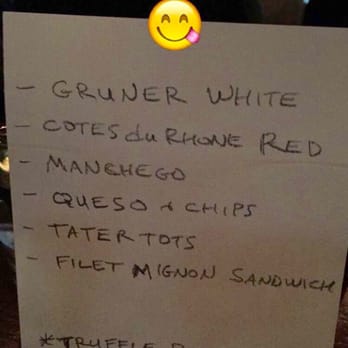 - GRUNER WHITE
- COTES du RHONE RED
- MANCHEGO
- QUESO + CHIPS
- TATER TOTS
- FILET MIGNON SANDWICH
*TRUFFLE